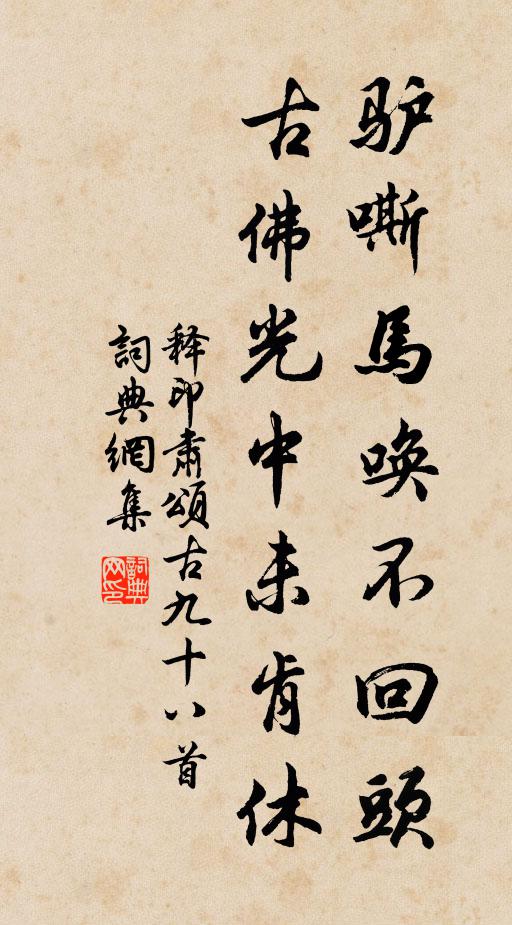 驴嘶馬唤不回頭
古佛光中未肯休
释印肃頌古九十八首
詞典網集
詞典网印